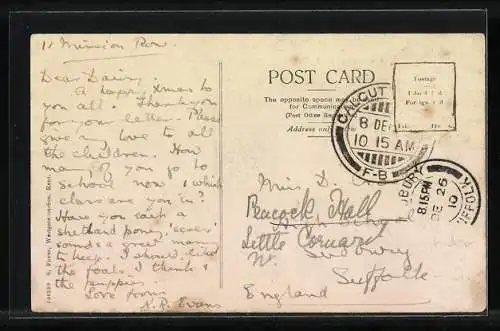 11 Mission Row.
Dear Daisy,
A happy Xmas to
you all. Thank you
for your letter. Please
give my love to all
the children. How
many of you go to
school now & which
class are you in?
Have you such a
shetland pony, "seven"
sounds a great many
to keep. I should like
the foals I think &
the puppies.
Love from
N. R. Evans
POST CARD
The opposite space may be used
for Communication
(Post Office Regulation)
Address only
Postage
CALCUTTA
8 DEC
10 15 AM
F-B
SUDBURY
8.15 PM
DE 26
10
SUFFOLK
Miss D.
Peacock Hall
Little Cornard
Nr. Sudbury
Suffolk
England